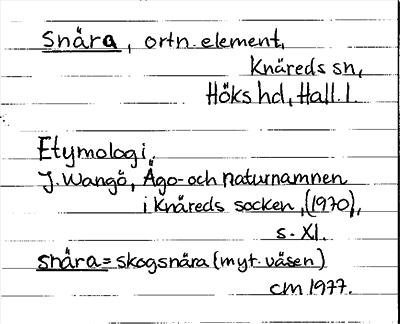 snära, ortn. element,
Knäreds sn,
Höks hd, Hall. l.
Etymologi.
J. Wangö, Ägo- och naturnamnen
i Knäreds socken, (1970),
s. XI.
snära = skogsnära (myt. väsen)
CM 1977.